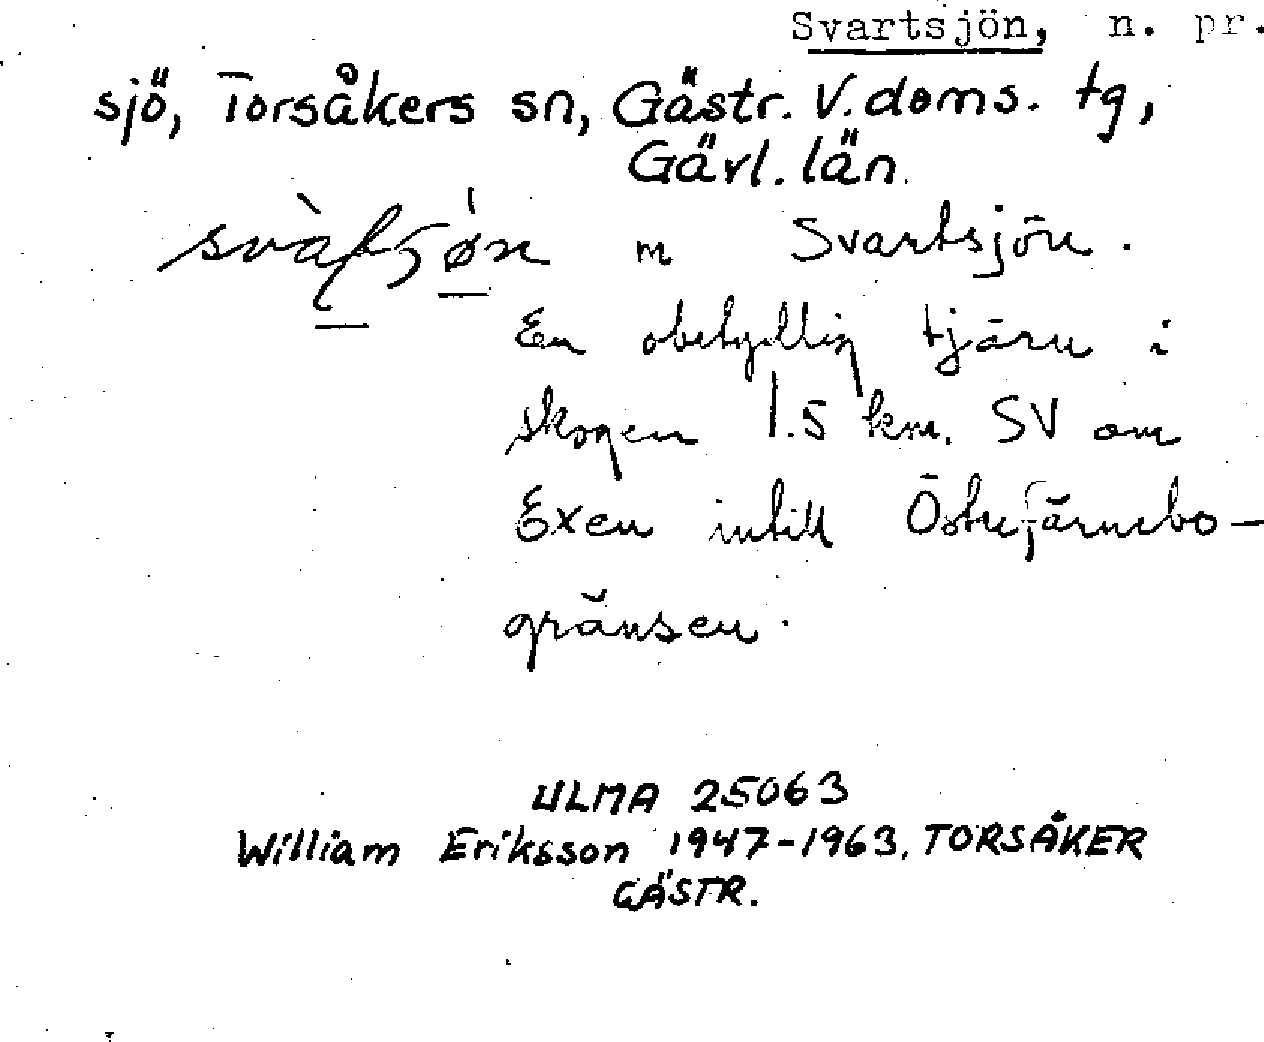 Svartsjön, n. pr.
sjö, Torsåkers sn, Gästr. V. doms. tg,
Gävl. län.
m Svartsjön.
En obetydlig tjärn i
skogen 1.5 km. SV om
Exen intill Österfärnebo-
gränsen.
ULMA 25063
William Eriksson 1947-1963, TORSÅKER
GÄSTR.